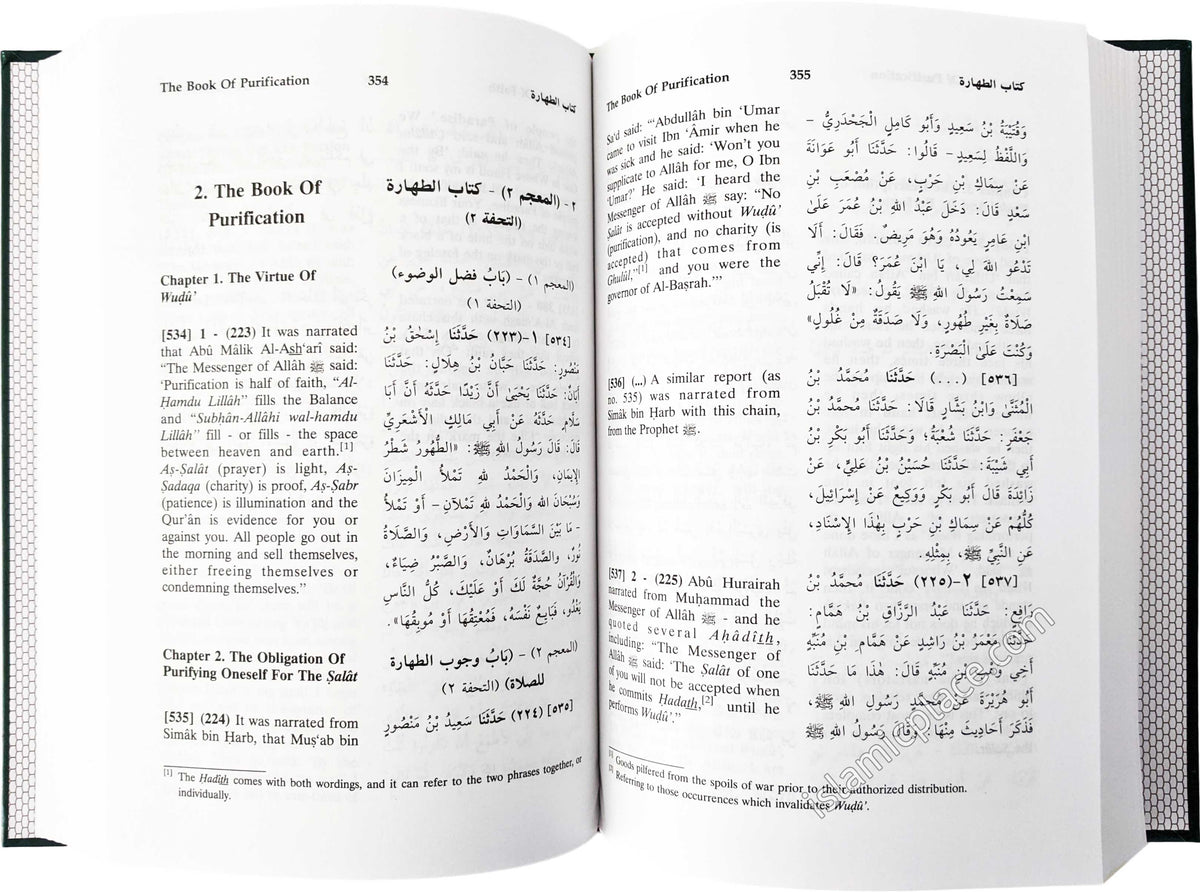 The Book Of Purification 354 كتاب الطهارة
2. The Book Of
Purification
Chapter 1. The Virtue Of
Wuḍû’
[534] 1 - (223) It was narrated
that Abû Mâlik Al-Ash‘arî said:
“The Messenger of Allâh ﷺ said:
‘Purification is half of faith, “Al-
Ḥamdu Lillâh” fills the Balance
and “Subḥân-Allâhi wal-hamdu
Lillâh” fill - or fills - the space
between heaven and earth.[1]
Aṣ-Ṣalât (prayer) is light, Aṣ-
Ṣadaqa (charity) is proof, Aṣ-Ṣabr
(patience) is illumination and the
Qur’ân is evidence for you or
against you. All people go out in
the morning and sell themselves,
either freeing themselves or
condemning themselves.”
Chapter 2. The Obligation Of
Purifying Oneself For The Ṣalât
[535] (224) It was narrated from
Simâk bin Ḥarb, that Muṣ‘ab bin
٢ - (المعجم ٢) - كتاب الطهارة
(التحفة ٢)
(المعجم ١) - (بَابُ فضل الوضوء)
(التحفة ١)
[٥٣٤] ١-(٢٢٣) حَدَّثَنَا إِسْحَقُ بْنُ
مَنْصُورٍ: حَدَّثَنَا حَبَّانُ بْنُ هِلَالٍ: حَدَّثَنَا
أَبَانُ: حَدَّثَنَا يَحْيَىٰ أَنَّ زَيْدًا حَدَّثَهُ أَنَّ أَبَا
سَلَّامٍ حَدَّثَهُ عَنْ أَبِي مَالِكٍ الْأَشْعَرِيِّ
قَالَ: قَالَ رَسُولُ اللهِ ﷺ: «الطُّهُورُ شَطْرُ
الْإِيمَانِ، وَالْحَمْدُ لِلهِ تَمْلَأُ الْمِيزَانَ
وَسُبْحَانَ اللهِ وَالْحَمْدُ لِلهِ تَمْلَآنِ - أَوْ تَمْلَأُ
- مَا بَيْنَ السَّمَاوَاتِ وَالْأَرْضِ، وَالصَّلَاةُ
نُورٌ، وَالصَّدَقَةُ بُرْهَانٌ، وَالصَّبْرُ ضِيَاءٌ،
وَالْقُرْآنُ حُجَّةٌ لَكَ أَوْ عَلَيْكَ، كُلُّ النَّاسِ
يَغْدُو، فَبَايِعٌ نَفْسَهُ، فَمُعْتِقُهَا أَوْ مُوبِقُهَا».
(المعجم ٢) - (بَابُ وجوب الطهارة
للصلاة) (التحفة ٢)
[٥٣٥] (٢٢٤) حَدَّثَنَا سَعِيدُ بْنُ مَنْصُورٍ
[1] The Hadith comes with both wordings, and it can refer to the two phrases together, or
individually.
The Book Of Purification 355 كتاب الطهارة
Sa‘d said: “‘Abdullâh bin ‘Umar
came to visit Ibn ‘Âmir when he
was sick and he said: ‘Won’t you
supplicate to Allâh for me, O Ibn
‘Umar?’ He said: ‘I heard the
Messenger of Allâh ﷺ say: “No
Ṣalât is accepted without Wuḍû’
(purification), and no charity (is
accepted) that comes from
Ghulûl,”[1] and you were the
governor of Al-Baṣrah.’”
[536] (...) A similar report (as
no. 535) was narrated from
Simâk bin Ḥarb with this chain,
from the Prophet ﷺ.
[537] 2 - (225) Abû Hurairah
narrated from Muḥammad the
Messenger of Allâh ﷺ - and he
quoted several Aḥâdîth,
including: “The Messenger of
Allâh ﷺ said: ‘The Ṣalât of one
of you will not be accepted when
he commits Ḥadath,[2] until he
performs Wuḍû’.’”
وَقُتَيْبَةُ بْنُ سَعِيدٍ وَأَبُو كَامِلٍ الْجَحْدَرِيُّ -
وَاللَّفْظُ لِسَعِيدٍ- قَالُوا: حَدَّثَنَا أَبُو عَوَانَةَ
عَنْ سِمَاكِ بْنِ حَرْبٍ، عَنْ مُصْعَبِ بْنِ
سَعْدٍ قَالَ: دَخَلَ عَبْدُ اللهِ بْنُ عُمَرَ عَلَىٰ
ابْنِ عَامِرٍ يَعُودُهُ وَهُوَ مَرِيضٌ. فَقَالَ: أَلَا
تَدْعُو اللهَ لِي، يَا ابْنَ عُمَرَ؟ قَالَ: إِنِّي
سَمِعْتُ رَسُولَ اللهِ ﷺ يَقُولُ: «لَا تُقْبَلُ
صَلَاةٌ بِغَيْرِ طُهُورٍ، وَلَا صَدَقَةٌ مِنْ غُلُولٍ»
وَكُنْتَ عَلَىٰ الْبَصْرَةِ.
[٥٣٦] (...) حَدَّثَنَا مُحَمَّدُ بْنُ
الْمُثَنَّىٰ وَابْنُ بَشَّارٍ قَالَا: حَدَّثَنَا مُحَمَّدُ بْنُ
جَعْفَرٍ: حَدَّثَنَا شُعْبَةُ؛ وَحَدَّثَنَا أَبُو بَكْرِ بْنُ
أَبِي شَيْبَةَ: حَدَّثَنَا حُسَيْنُ بْنُ عَلِيٍّ، عَنْ
زَائِدَةَ قَالَ أَبُو بَكْرٍ وَوَكِيعٌ عَنْ إِسْرَائِيلَ،
كُلُّهُمْ عَنْ سِمَاكِ بْنِ حَرْبٍ بِهَٰذَا الْإِسْنَادِ،
عَنِ النَّبِيِّ ﷺ، بِمِثْلِهِ.
[٥٣٧] ٢-(٢٢٥) حَدَّثَنَا مُحَمَّدُ بْنُ
رَافِعٍ: حَدَّثَنَا عَبْدُ الرَّزَّاقِ بْنُ هَمَّامٍ:
حَدَّثَنَا مَعْمَرُ بْنُ رَاشِدٍ عَنْ هَمَّامِ بْنِ مُنَبِّهٍ
أَخِي وَهْبِ بْنِ مُنَبِّهٍ قَالَ: هَٰذَا مَا حَدَّثَنَا
أَبُو هُرَيْرَةَ عَنْ مُحَمَّدٍ رَسُولِ اللهِ ﷺ،
فَذَكَرَ أَحَادِيثَ مِنْهَا: وَقَالَ رَسُولُ اللهِ ﷺ
Goods pilfered from the spoils of war prior to their authorized distribution.
Referring to those occurrences which invalidates Wuḍû’.
islamicplace.com